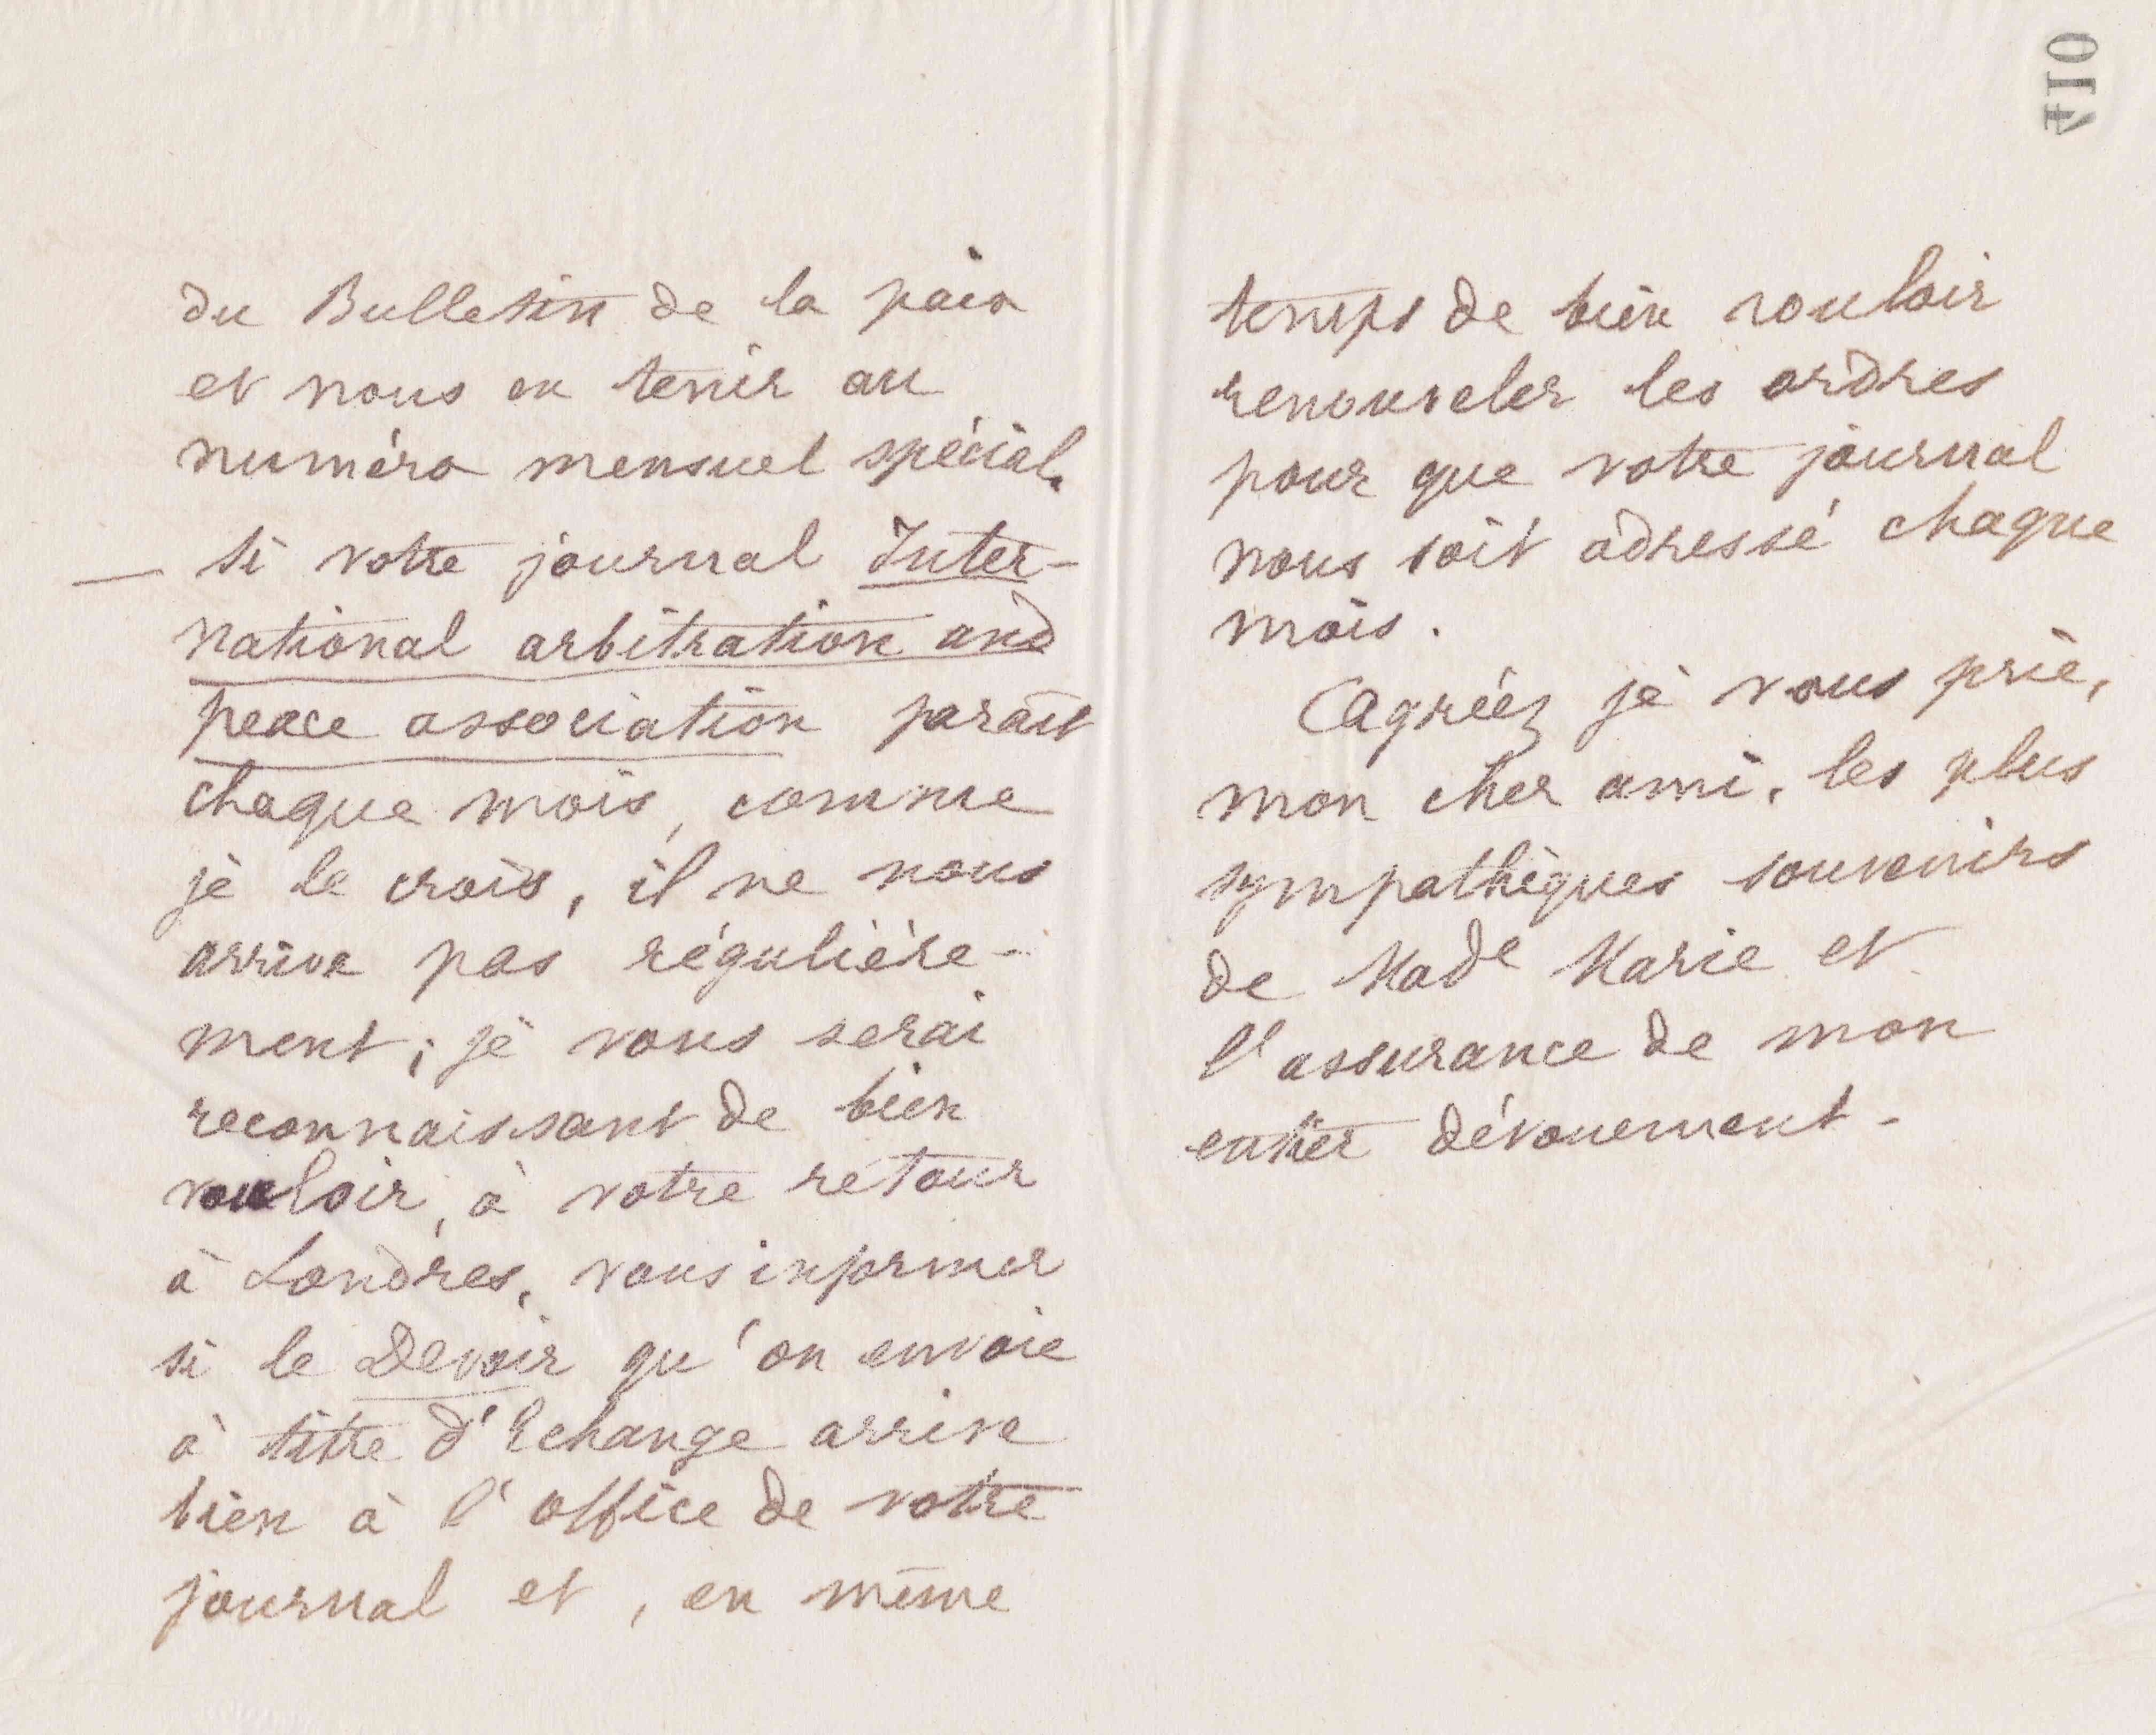 du Bulletin de la paix
et nous en tenir au
numéro mensuel spécial.
— Si votre journal Inter-
national arbitration and
peace association parait
chaque mois, comme
je le crois, il ne nous
arrive pas régulière-
ment; je vous serai
reconnaissant de bien
vouloir, à votre retour
à Londres, vous informer
si le Devoir qu'on envoie
à titre d'échange arrive
bien à l'office de votre
journal et, en même
temps de bien vouloir
renouveler les ordres
pour que votre journal
nous soit adressé chaque
mois.
Agréez je vous prie,
mon cher ami, les plus
sympathiques souvenirs
de Made Marie et
l'assurance de mon
entier dévouement.
410